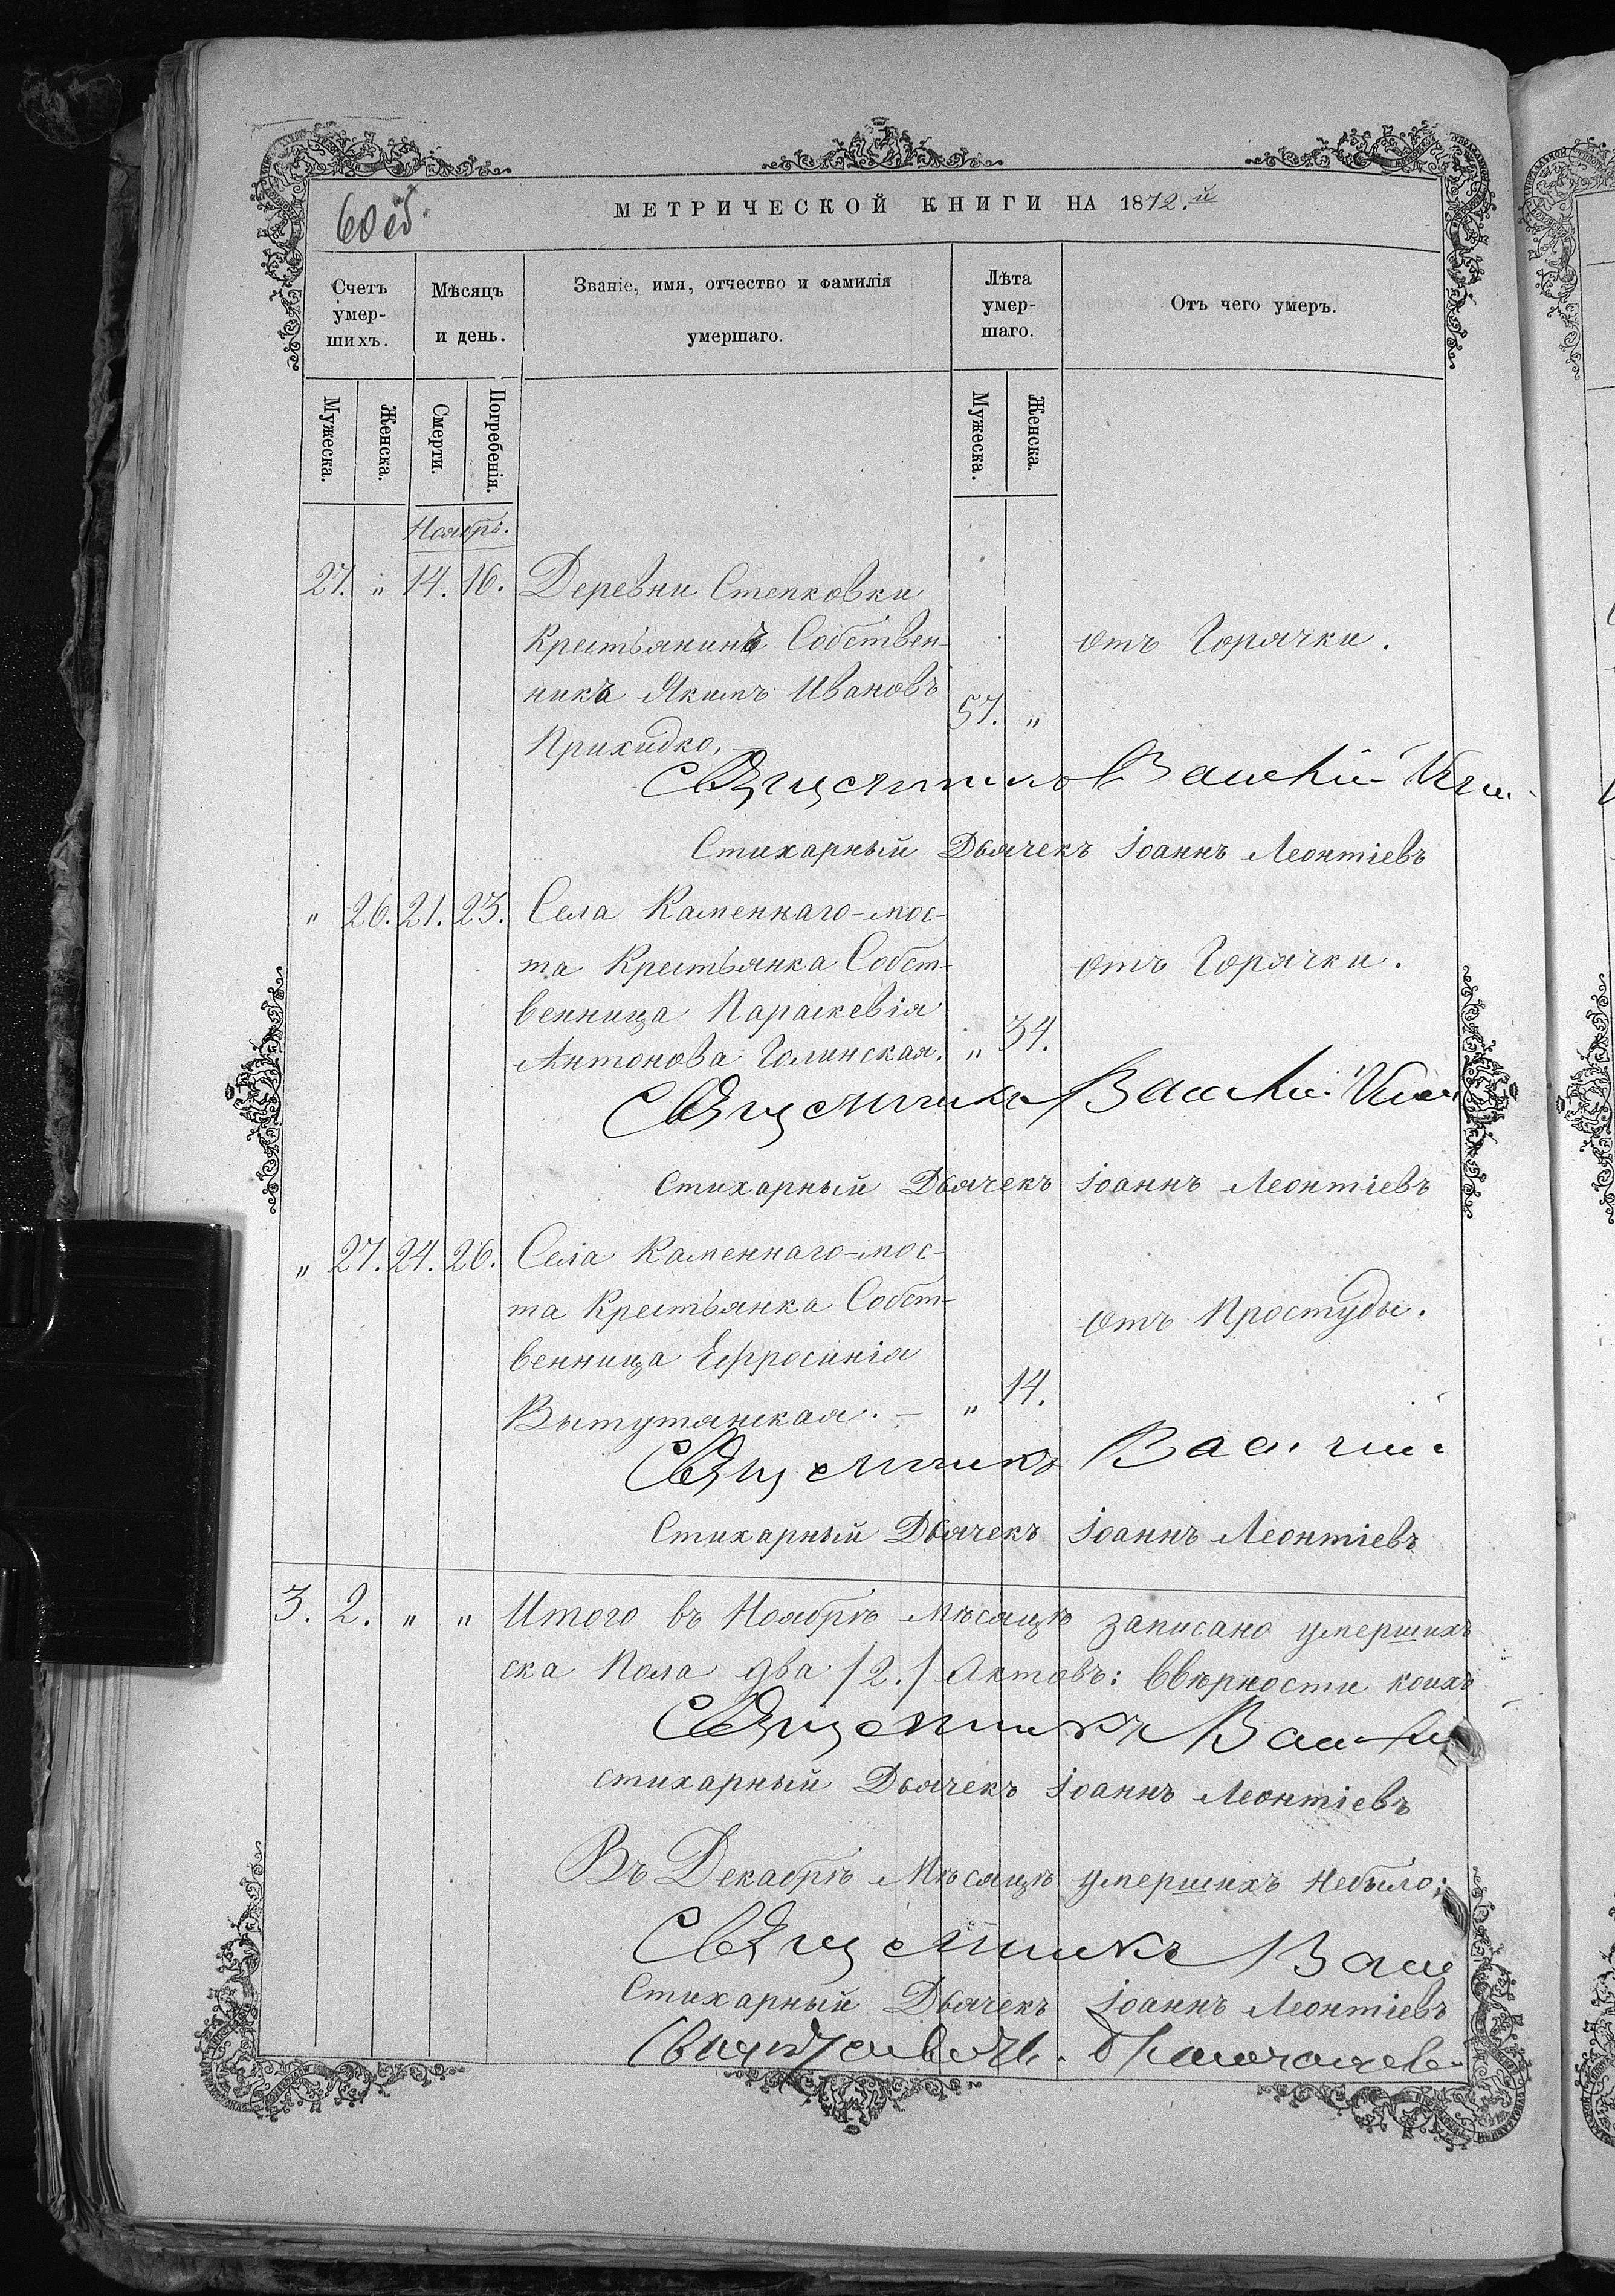 60 об.
МЕТРИЧЕСКОЙ КНИГИ НА 1872.й
Счетъ умер-шихъ.
Мѣсяцъ и день.
Званіе, имя, отчество и фамилія умершаго.
Лѣта умер-шаго.
Отъ чего умеръ.
Мужеска.
Женска.
Смерти.
Погребенія.
Мужеска.
Женска.
Ноябрь.
27. " 14. 16. Деревни Степковки
Крестьянинъ Собствен-
отъ Горячки.
никъ Якимъ Ивановъ
57. "
Приходко.
Священникъ Василій
Стихарный Дьячекъ Іоаннъ Леонтіевъ
" 26. 21. 23. Села Каменнаго-мос-
та Крестьянка Собст-
отъ Горячки.
венница Параскевія
Антонова Голинская. " 34.
Священникъ Василій
Стихарный Дьячекъ Іоаннъ Леонтіевъ
" 27. 24. 26. Села Каменнаго-мос-
та Крестьянка Собст-
отъ Простуды.
венница Ефросинія
Вытутянская. — " 14.
Священникъ Василій
Стихарный Дьячекъ Іоаннъ Леонтіевъ
3. 2. " " Итого въ Ноябрѣ Мѣсяцѣ записано умершихъ
ска Пола два /2./ Актовъ: ввѣрности коихъ
Священникъ
стихарный Дьячекъ Іоаннъ Леонтіевъ
Въ Декабрѣ Мѣсяцѣ умершихъ Небыло:
Священникъ
Стихарный Дьячекъ Іоаннъ Леонтіевъ